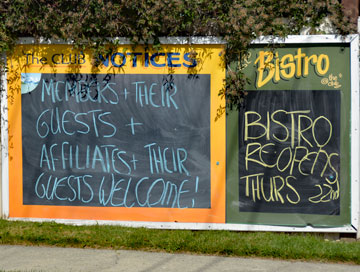 The CLUB NOTICES
MEMBERS + THEIR
GUESTS +
AFFILIATES + THEIR
GUESTS WELCOME!
Bistro
@ the club
BISTRO
REOPENS
THURS 22nd